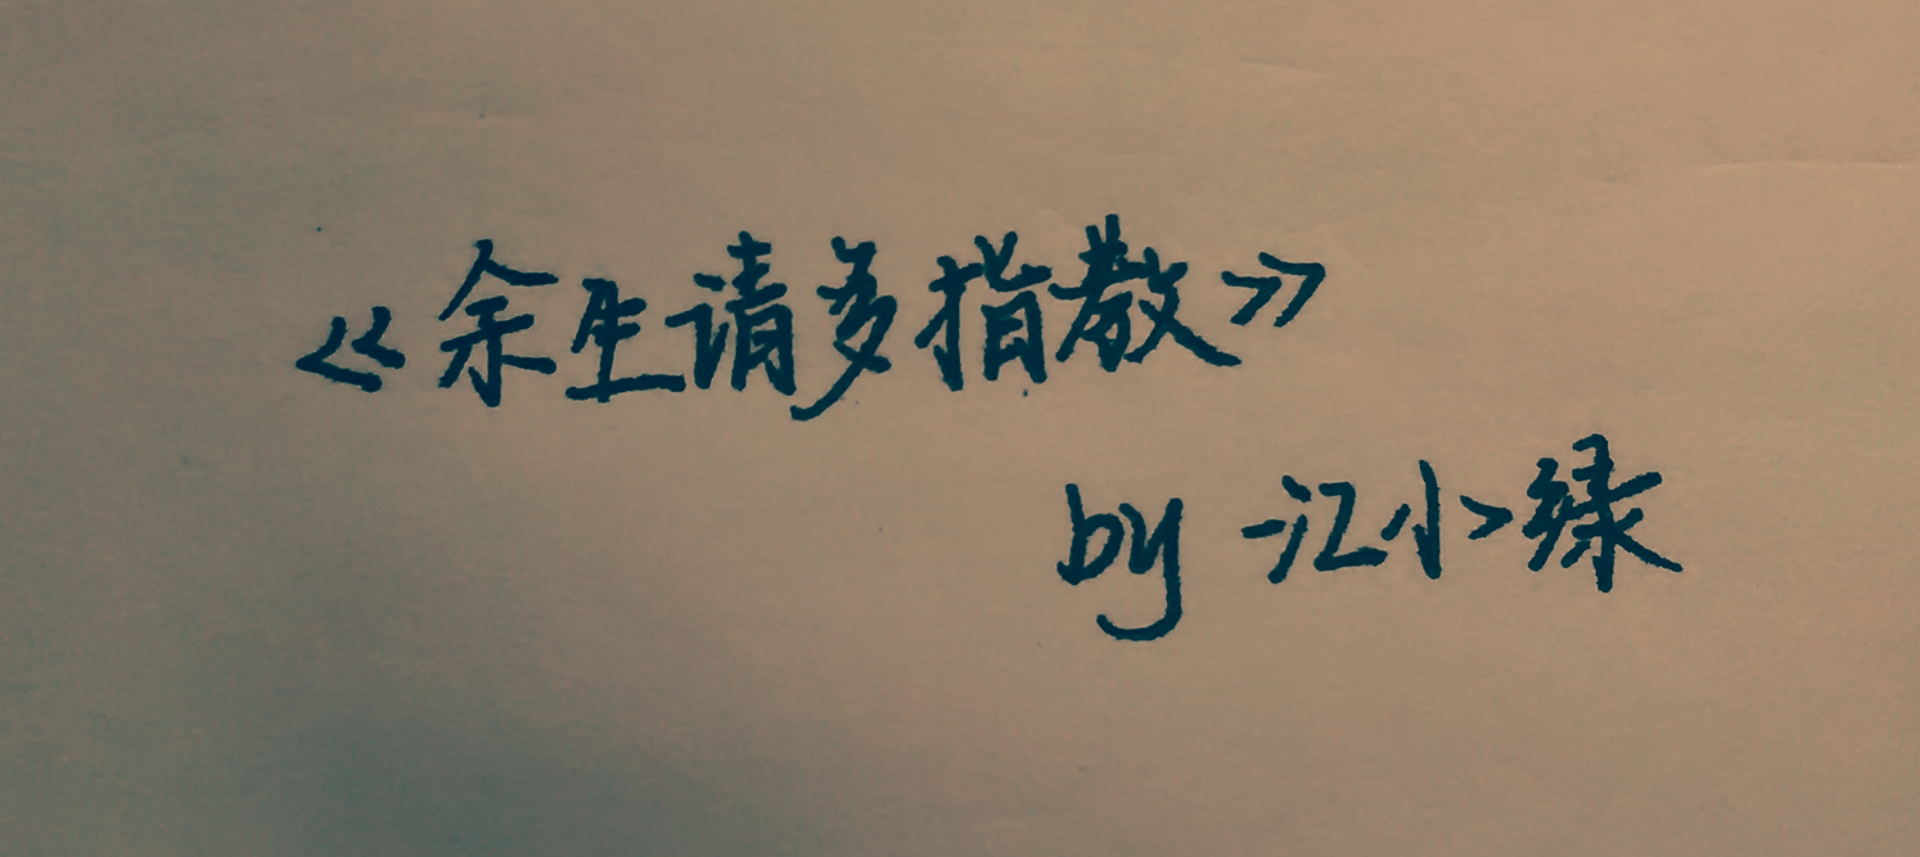 《余生请多指教》
by 江小绿